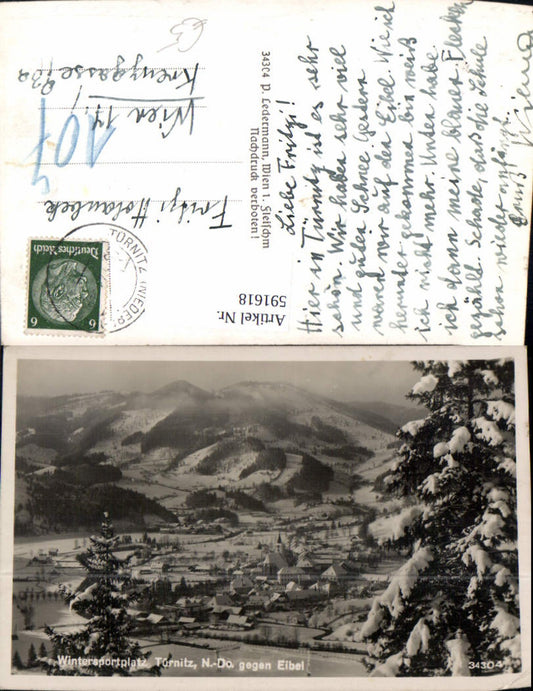 Liebe Fritzi!
Hier in Türnitz ist es sehr
schön. Wir haben sehr viel
und guten Schnee. Gestern
waren wir auf den Eibel. Wie ich
herunter gekommen bin weiß
ich nicht mehr. Unten habe
ich dann meine blauen Flecken
gezählt. Schade, daß die Schule
schon wieder anfängt.
Fritzi
Wien 17.
101
34304 P. Ledermann, Wien I, Fleischm
Nachdruck verboten!
Deutsches Reich
6 6
TÜRNITZ (NIEDER
Artikel Nr.
591618
Wintersportplatz Türnitz, N.-Do. gegen Eibel
34304